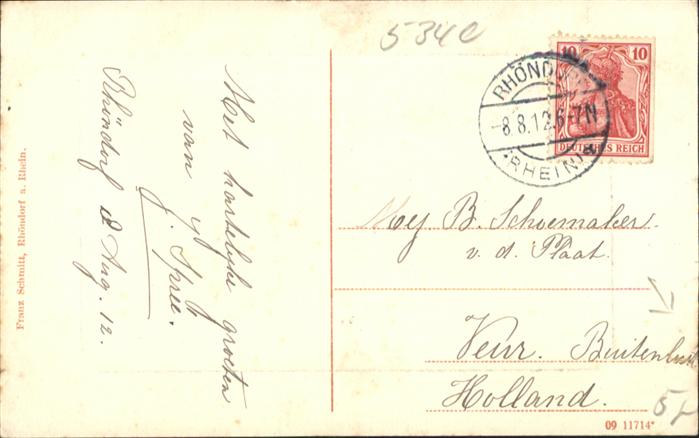 534c
10 10
DEUTSCHES REICH
RHÖNDORF
-8.8.12.6-7N
(RHEIN)
Met hartelyke groeten
van
J. Spree.
Rhöndorf 8 Aug. 12.
Mej B. Schoemaker
v. d. Plaat.
Veur. Buitenlust
Holland.
5,-
Franz Schmitt, Rhöndorf a. Rhein.
09 11714*